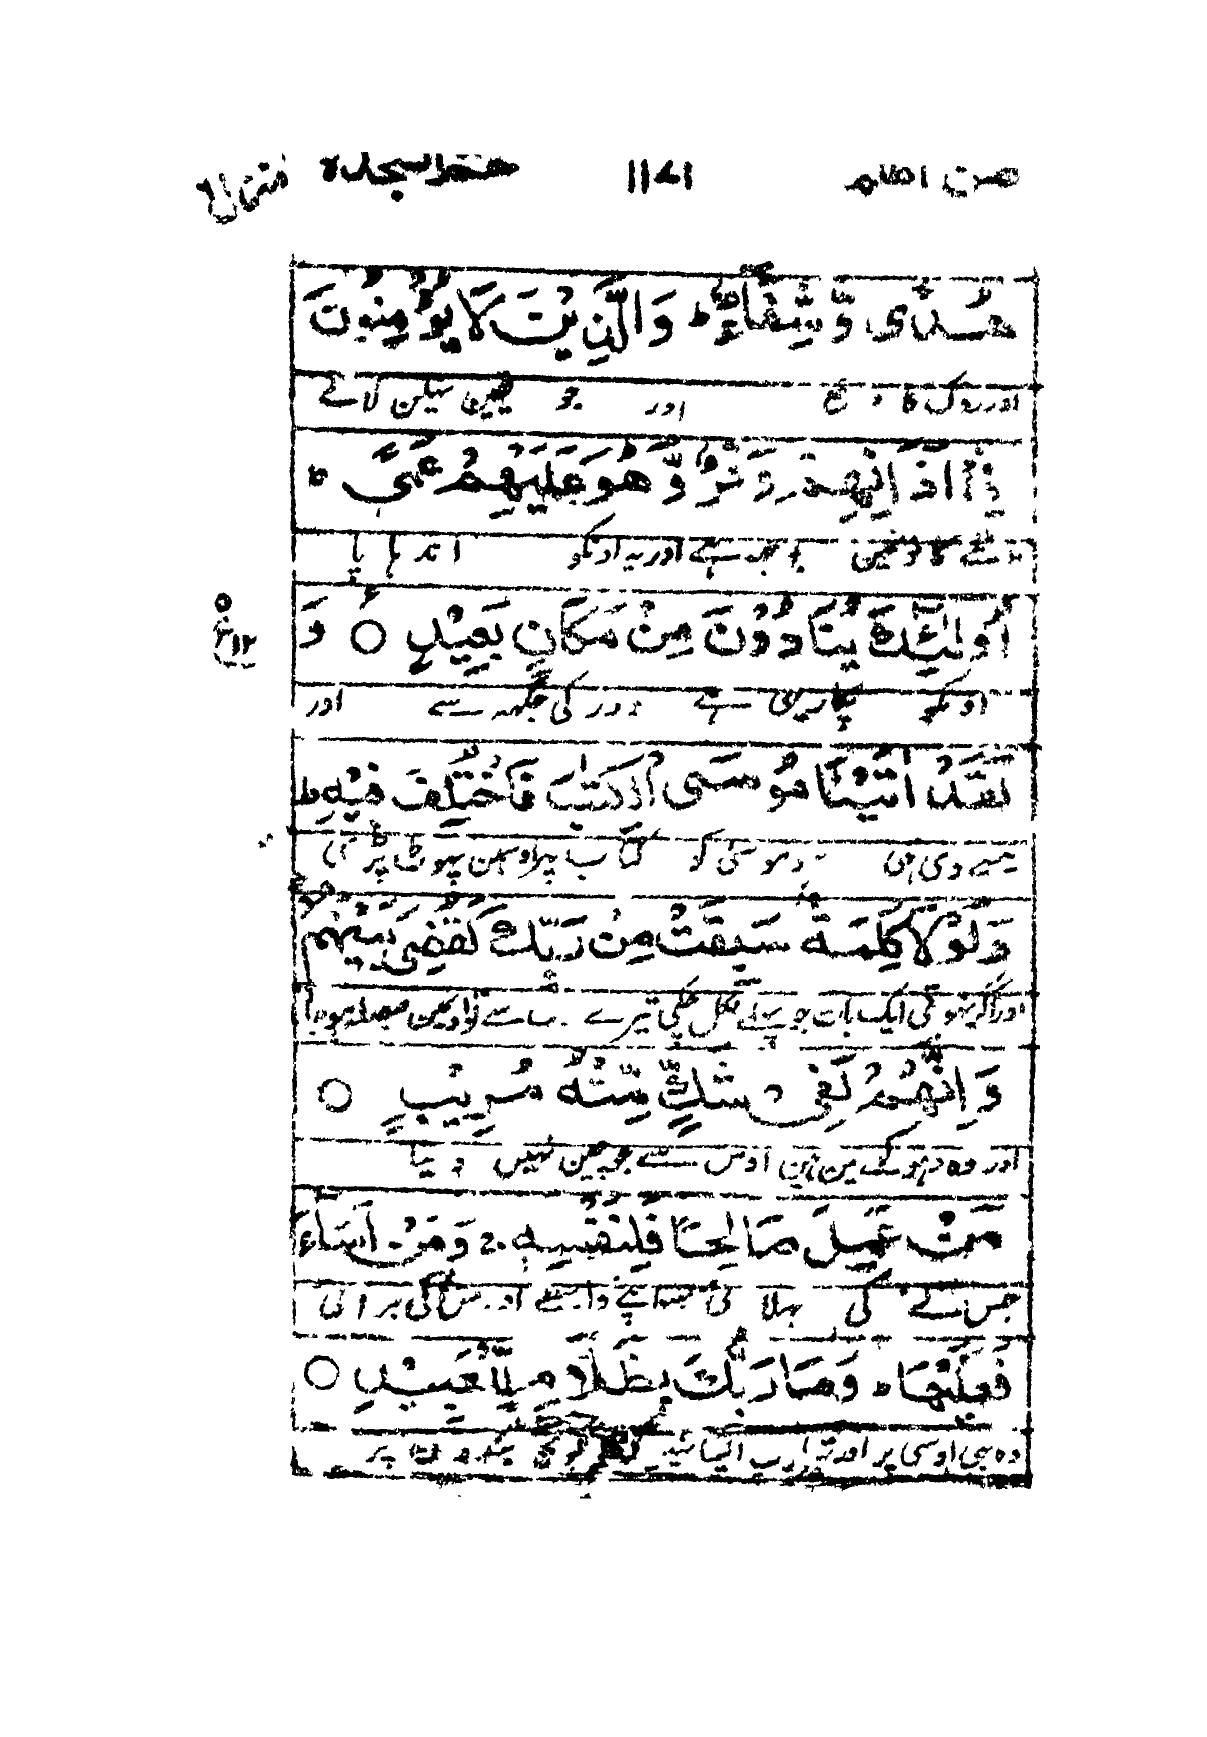 فمن اظلم ۱۱۷۱ حٰمٓ السجدة
هُدًى وَّشِفَآءٌ ط وَالَّذِيْنَ لَا يُؤْمِنُوْنَ
اور روگ کا دفع اور جو یقین نہین لاتے
فِيْٓ اٰذَانِهِمْ وَقْرٌ وَّهُوَ عَلَيْهِمْ عَمًى ط
اونکے کانونمین بوجہہ ہے اور یہ اونکو اندہاپا
اُولٰٓئِكَ يُنَادَوْنَ مِنْ مَّكَانٍۢ بَعِيْدٍ ○ وَ
اونکو پکارتے ہین دور کی جگہہ سے اور
لَقَدْ اٰتَيْنَا مُوْسَى الْكِتٰبَ فَاخْتُلِفَ فِيْهِ ط
ہمنے دی تہی موسیٰ کو کتاب پہر اوسمین پہوٹ پڑی
وَلَوْلَا كَلِمَةٌ سَبَقَتْ مِنْ رَّبِّكَ لَقُضِيَ بَيْنَهُمْ
اور اگر نہوتی ایک بات جو پہلے نکل چکی تیرے رب سے تو اونمین فیصلہ ہو جاتا
وَاِنَّهُمْ لَفِيْ شَكٍّ مِّنْهُ مُرِيْبٍ ○
اور وہ دہوکے مین ہین اوس سے جو چین نہین دیتا
مَنْ عَمِلَ صَالِحًا فَلِنَفْسِهٖ ج وَمَنْ اَسَآءَ
جس نے کی بہلائی اپنے واسطے اور جس نے کی برائی
فَعَلَيْهَا ط وَمَا رَبُّكَ بِظَلَّامٍ لِّلْعَبِيْدِ ○
وہ بہی اوسی پر اور تیرا رب ایسا نہین بندون پر